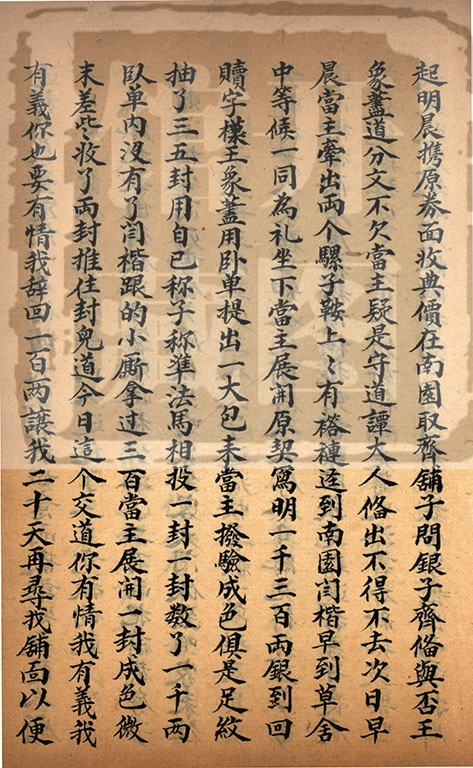 起明晨携原券面收典價在南園取齊舖子問銀子齊偹與否王
象藎道分文不欠當主疑是守道譚大人偹出不得不去次日早
晨當主牽出両个騾子鞍上〻有褡褳迳到南園闫楷早到草舎
中等候一同為礼坐下當主展開原契寫明一千三百両銀到回
贖字様王象藎用卧单提出一大包来當主撥驗成色俱是足紋
抽了三五封用自己称子称準法馬相投一封一封数了一千両
卧单内没有了闫楷跟的小厮拿过三百當主展開一封成色微
末差些收了両封推住封皃道今日這个交道你有情我有義我
有義你也要有情我辞回一百両讓我二十天再尋找舖面以便